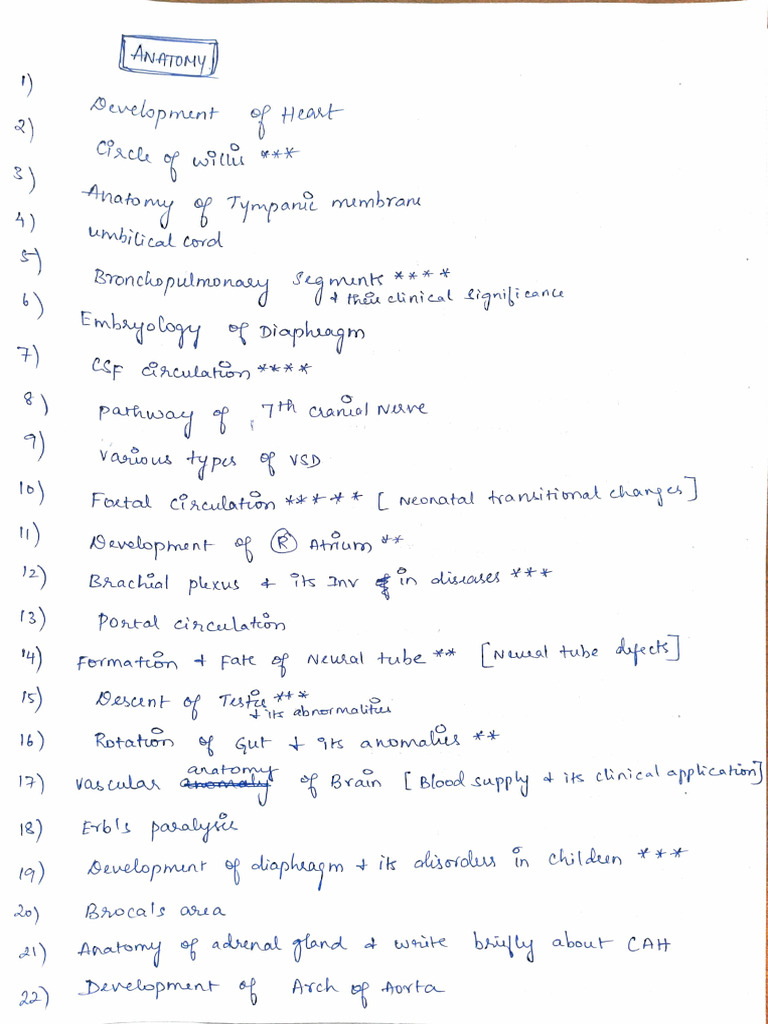 ANATOMY
1) Development of Heart
2) Circle of Willis ***
3) Anatomy of Tympanic membrane
4) umbilical cord
5) Bronchopulmonary segments ****
+ their clinical significance
6) Embryology of Diaphragm
7) CSF circulation ****
8) pathway of 7th cranial Nerve
9) various types of VSD
10) Foetal circulation ***** [Neonatal transitional changes]
11) Development of R Atrium **
12) Brachial plexus + its Inv in diseases ***
13) Portal circulation
14) Formation + Fate of Neural tube ** [Neural tube defects]
15) Descent of Testis ***
+ its abnormalities
16) Rotation of Gut + its anomalies **
17) vascular anatomy of Brain [Blood supply + its clinical application]
18) Erb's paralysis
19) Development of diaphragm + its disorders in children ***
20) Broca's area
21) Anatomy of adrenal gland + write briefly about CAH
22) Development of Arch of Aorta